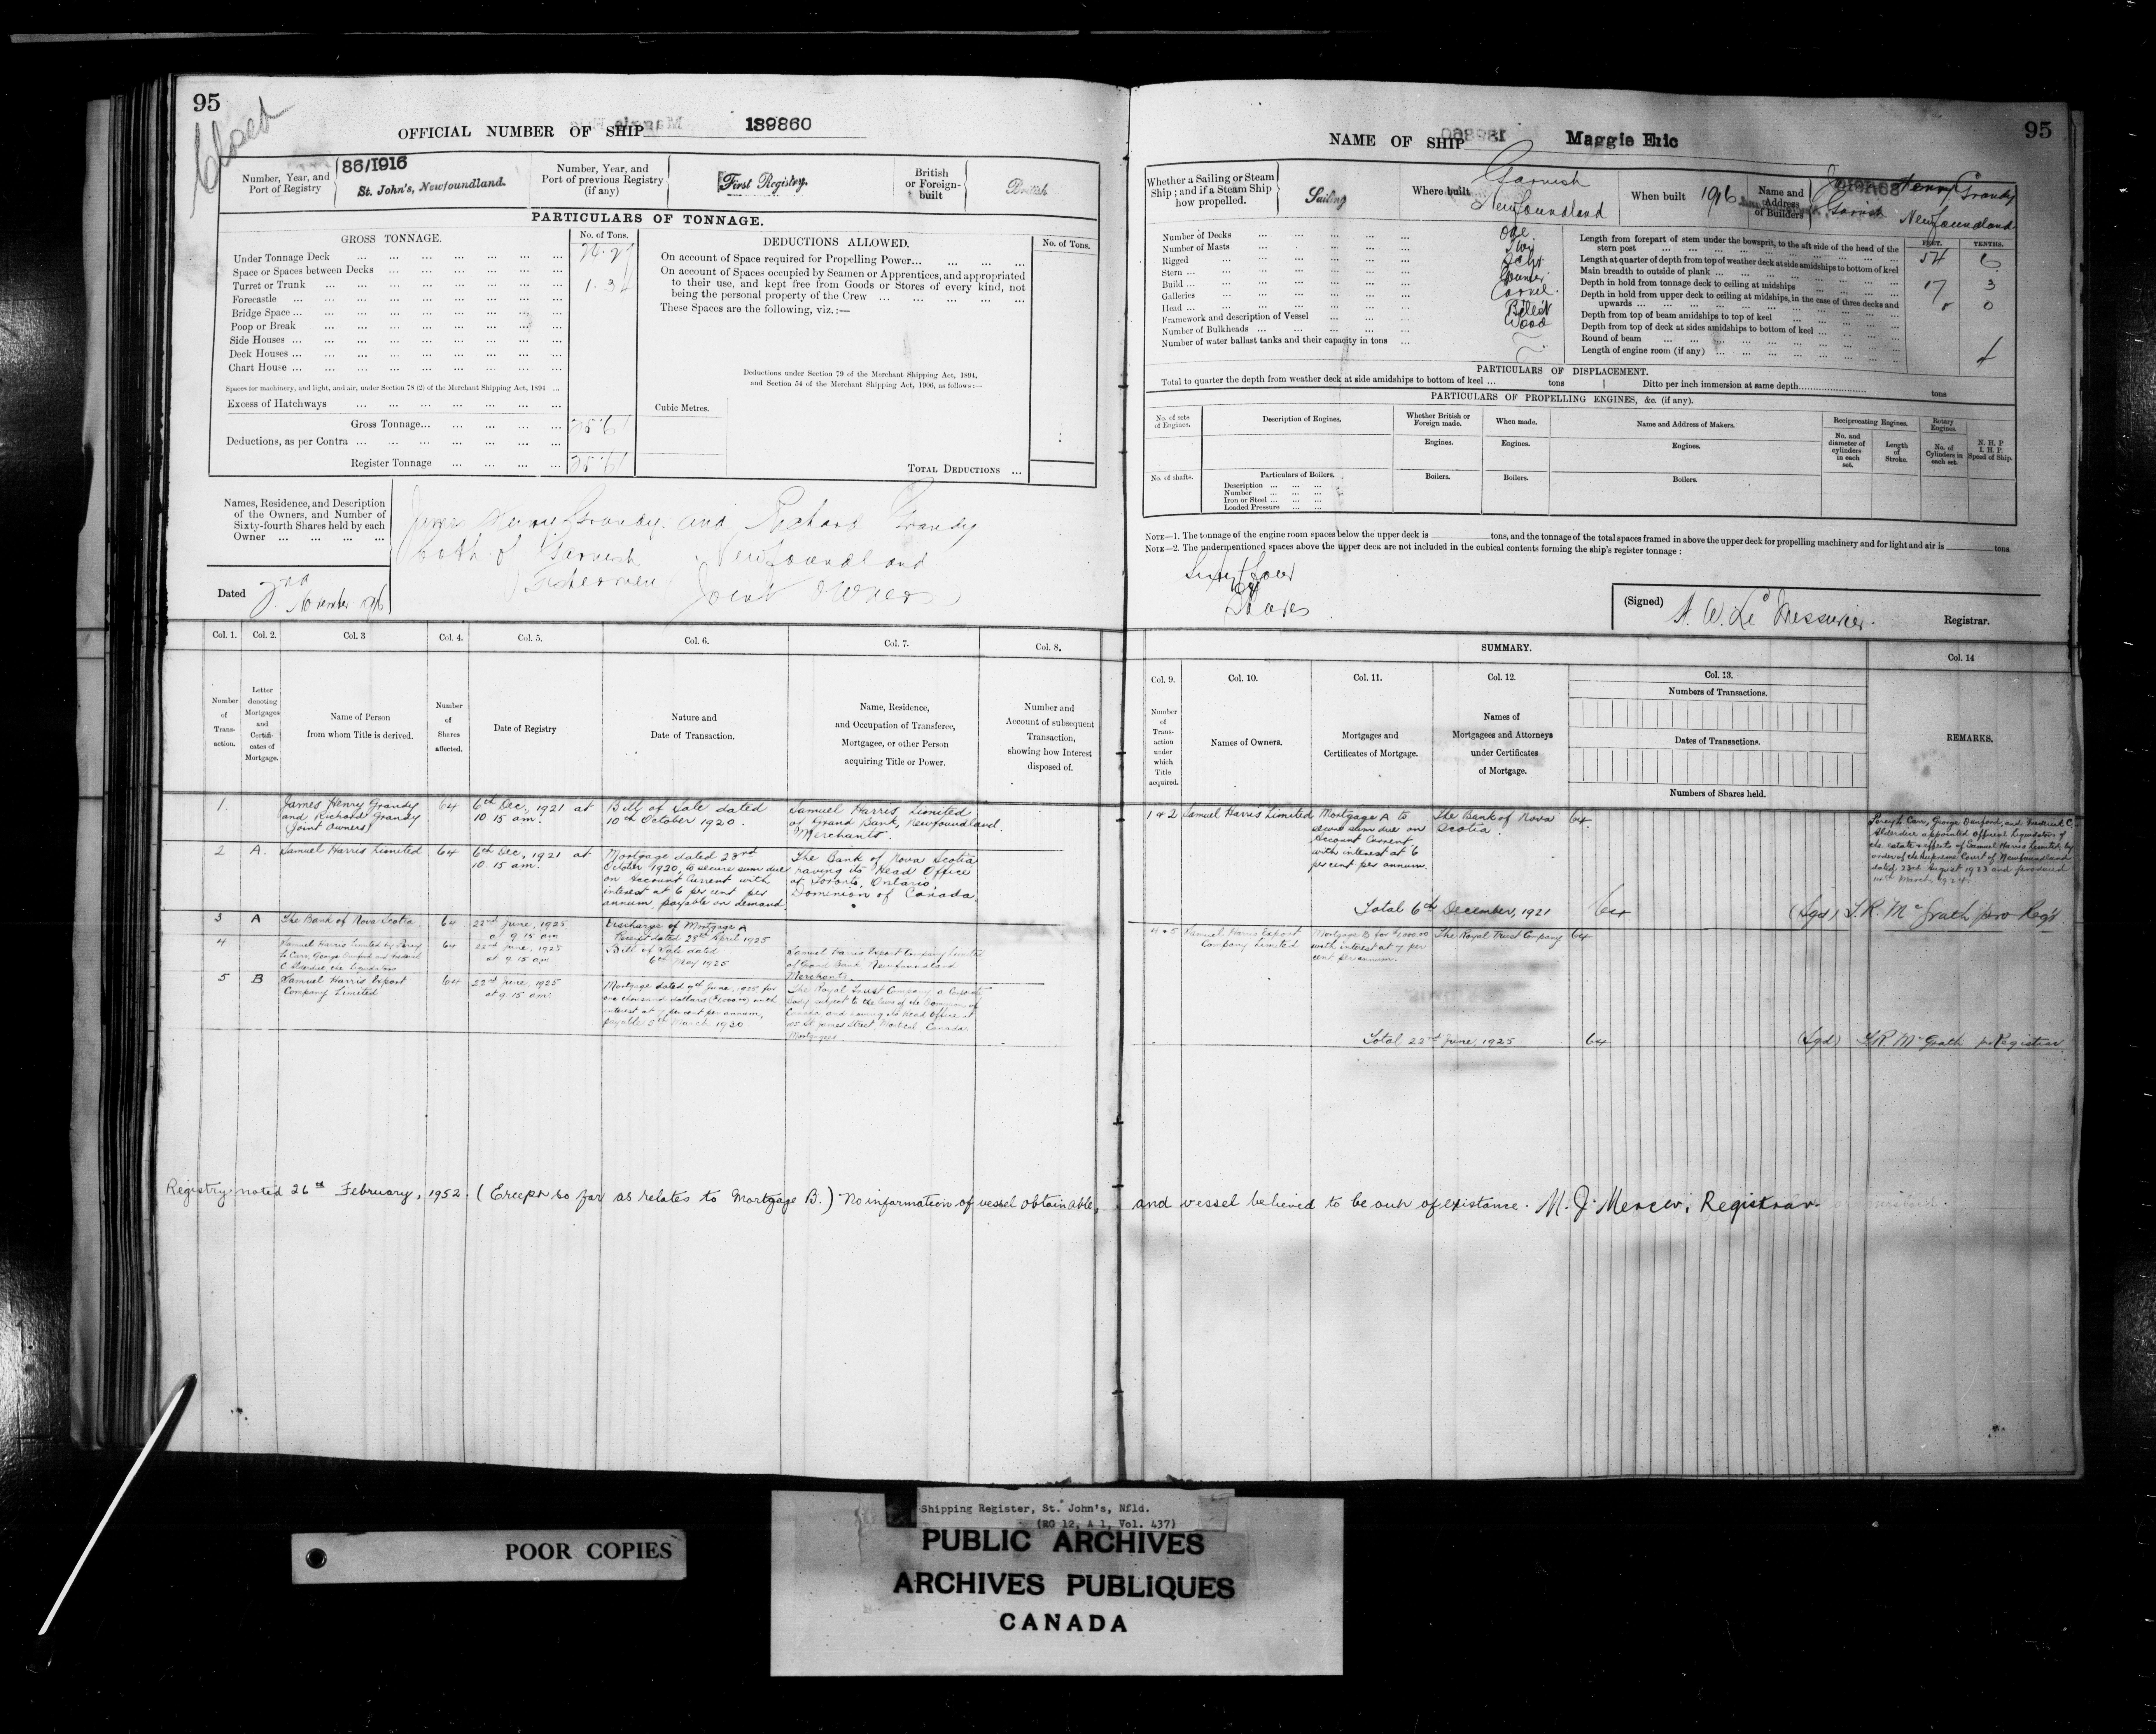 95
Closed
OFFICIAL NUMBER OF SHIP 139860
Number, Year, and Port of Registry
86/1916
St. John's, Newfoundland.
Number, Year, and Port of previous Registry (if any)
First Registry.
British or Foreign-built
British
PARTICULARS OF TONNAGE.
GROSS TONNAGE.
No. of Tons.
Under Tonnage Deck
Space or Spaces between Decks
Turret or Trunk
Forecastle
Bridge Space
Poop or Break
Side Houses
Deck Houses
Chart House
Spaces for machinery, and light, and air, under Section 78 (2) of the Merchant Shipping Act, 1894
Excess of Hatchways
Gross Tonnage 25.61
Deductions, as per Contra
Register Tonnage 25.61
DEDUCTIONS ALLOWED.
No. of Tons.
On account of Space required for Propelling Power
On account of Spaces occupied by Seamen or Apprentices, and appropriated
to their use, and kept free from Goods or Stores of every kind, not
being the personal property of the Crew
These Spaces are the following, viz.:—
Deductions under Section 79 of the Merchant Shipping Act, 1894,
and Section 54 of the Merchant Shipping Act, 1906, as follows:—
Cubic Metres.
TOTAL DEDUCTIONS
Names, Residence, and Description
of the Owners, and Number of
Sixty-fourth Shares held by each
Owner
James Henry Grandy and Richard Grandy
both of Garnish Newfoundland
Fishermen Joint Owners
Dated November 1916
NAME OF SHIP Maggie Eric
95
Whether a Sailing or Steam Ship; and if a Steam Ship how propelled.
Sailing
Where built
Garnish
Newfoundland
When built 1916
Name and Address of Builders
Henry Grandy
Garnish Newfoundland
Number of Decks One
Number of Masts Two
Rigged Schr
Stern Counter
Build Carvel
Galleries
Head Billet
Framework and description of Vessel Wood
Number of Bulkheads
Number of water ballast tanks and their capacity in tons
FEET. TENTHS.
Length from forepart of stem under the bowsprit, to the aft side of the head of the stern post 54 6
Length at quarter of depth from top of weather deck at side amidships to bottom of keel
Main breadth to outside of plank 17 3
Depth in hold from tonnage deck to ceiling at midships
Depth in hold from upper deck to ceiling at midships, in the case of three decks and upwards
Depth from top of beam amidships to top of keel
Depth from top of deck at sides amidships to bottom of keel
Round of beam
Length of engine room (if any)
PARTICULARS OF DISPLACEMENT.
Total to quarter the depth from weather deck at side amidships to bottom of keel ... tons
Ditto per inch immersion at same depth tons
PARTICULARS OF PROPELLING ENGINES, &c. (if any).
No. of sets of Engines.
Description of Engines.
Whether British or Foreign made.
When made.
Name and Address of Makers.
Reciprocating Engines.
Rotary Engines
N. H. P
I. H. P.
Speed of Ship.
Engines.
Engines.
Engines.
No. and diameter of cylinders in each set.
Length of Stroke.
No. of Cylinders in each set.
No. of shafts.
Particulars of Boilers.
Description
Number
Iron or Steel
Loaded Pressure
Boilers.
Boilers.
Boilers.
NOTE—1. The tonnage of the engine room spaces below the upper deck is tons, and the tonnage of the total spaces framed in above the upper deck for propelling machinery and for light and air is tons
NOTE—2. The undermentioned spaces above the upper deck are not included in the cubical contents forming the ship's register tonnage:
Sixty four
64
Shares
(Signed) Registrar.
Col. 1. Col. 2. Col. 3 Col. 4. Col. 5. Col. 6. Col. 7. Col. 8.
Number of Transaction.
Letter denoting Mortgages and Certificates of Mortgage.
Name of Person from whom Title is derived.
Number of Shares affected.
Date of Registry
Nature and Date of Transaction.
Name, Residence, and Occupation of Transferee, Mortgagee, or other Person acquiring Title or Power.
Number and Account of subsequent Transaction, showing how Interest disposed of.
1. James Henry Grandy and Richard Grandy (Joint Owners) 64 6th Dec., 1921 at 10 15 am Bill of Sale dated 10th October 1920. Samuel Harris Limited of Grand Bank, Newfoundland. Merchants.
2 A. Samuel Harris Limited 64 6th Dec, 1921 at 10. 15 am. Mortgage dated 23rd October 1920, to secure sum due on Account Current with interest at 6 per cent per annum, payable on demand. The Bank of Nova Scotia having its Head Office at Toronto, Ontario, Dominion of Canada.
3 A The Bank of Nova Scotia 64 22nd June, 1925 at 9 15 am Discharge of Mortgage A Receipt dated 28th April 1925
4 Samuel Harris Limited by Percy L. Carr, George Danford and Frederick C. Alderdice the Liquidators 64 22nd June, 1925 at 9 15 am Bill of Sale dated 6th May 1925 Samuel Harris Export Company Limited of Grand Bank, Newfoundland Merchants.
5 B Samuel Harris Export Company Limited 64 22nd June, 1925 at 9. 15 am Mortgage dated 9th June, 1925 for one thousand dollars with interest at 7 per cent per annum, payable March 1930 The Royal Trust Company a Corporate body subject to the laws of the Dominion of Canada and having its Head Office at 105 St James Street, Montreal, Canada. Mortgagees.
SUMMARY.
Col. 9. Col. 10. Col. 11. Col. 12. Col. 13. Col. 14
Number of Transaction under which Title acquired.
Names of Owners.
Mortgages and Certificates of Mortgage.
Names of Mortgagees and Attorneys under Certificates of Mortgage.
Numbers of Transactions.
Dates of Transactions.
Numbers of Shares held.
REMARKS.
1 & 2 Samuel Harris Limited Mortgage A to secure sum due on Account Current with interest at 6 per cent per annum. The Bank of Nova Scotia. 64
Percy L. Carr, George Danford, and Frederick C. Alderdice appointed Official Liquidators of the estate & effects of Samuel Harris Limited, by order of the Supreme Court of Newfoundland dated 22nd August 1923 and produced 14th March 1924.
Total 6th December, 1921 64 (Sgd) S.R. McGrath pro Reg'r
4 & 5 Samuel Harris Export Company Limited Mortgage B for $1000.00 with interest at 7 per cent per annum. The Royal Trust Company 64
Total 22nd June, 1925 64 (Sgd) S.R. McGrath Registrar
Registry noted 26th February, 1952. (Except so far as relates to Mortgage B.) No information of vessel obtainable, and vessel believed to be out of existance. M. J. Mercer, Registrar
POOR COPIES
Shipping Register, St. John's, Nfld.
(RG 12, A 1, Vol. 437)
PUBLIC ARCHIVES
ARCHIVES PUBLIQUES
CANADA